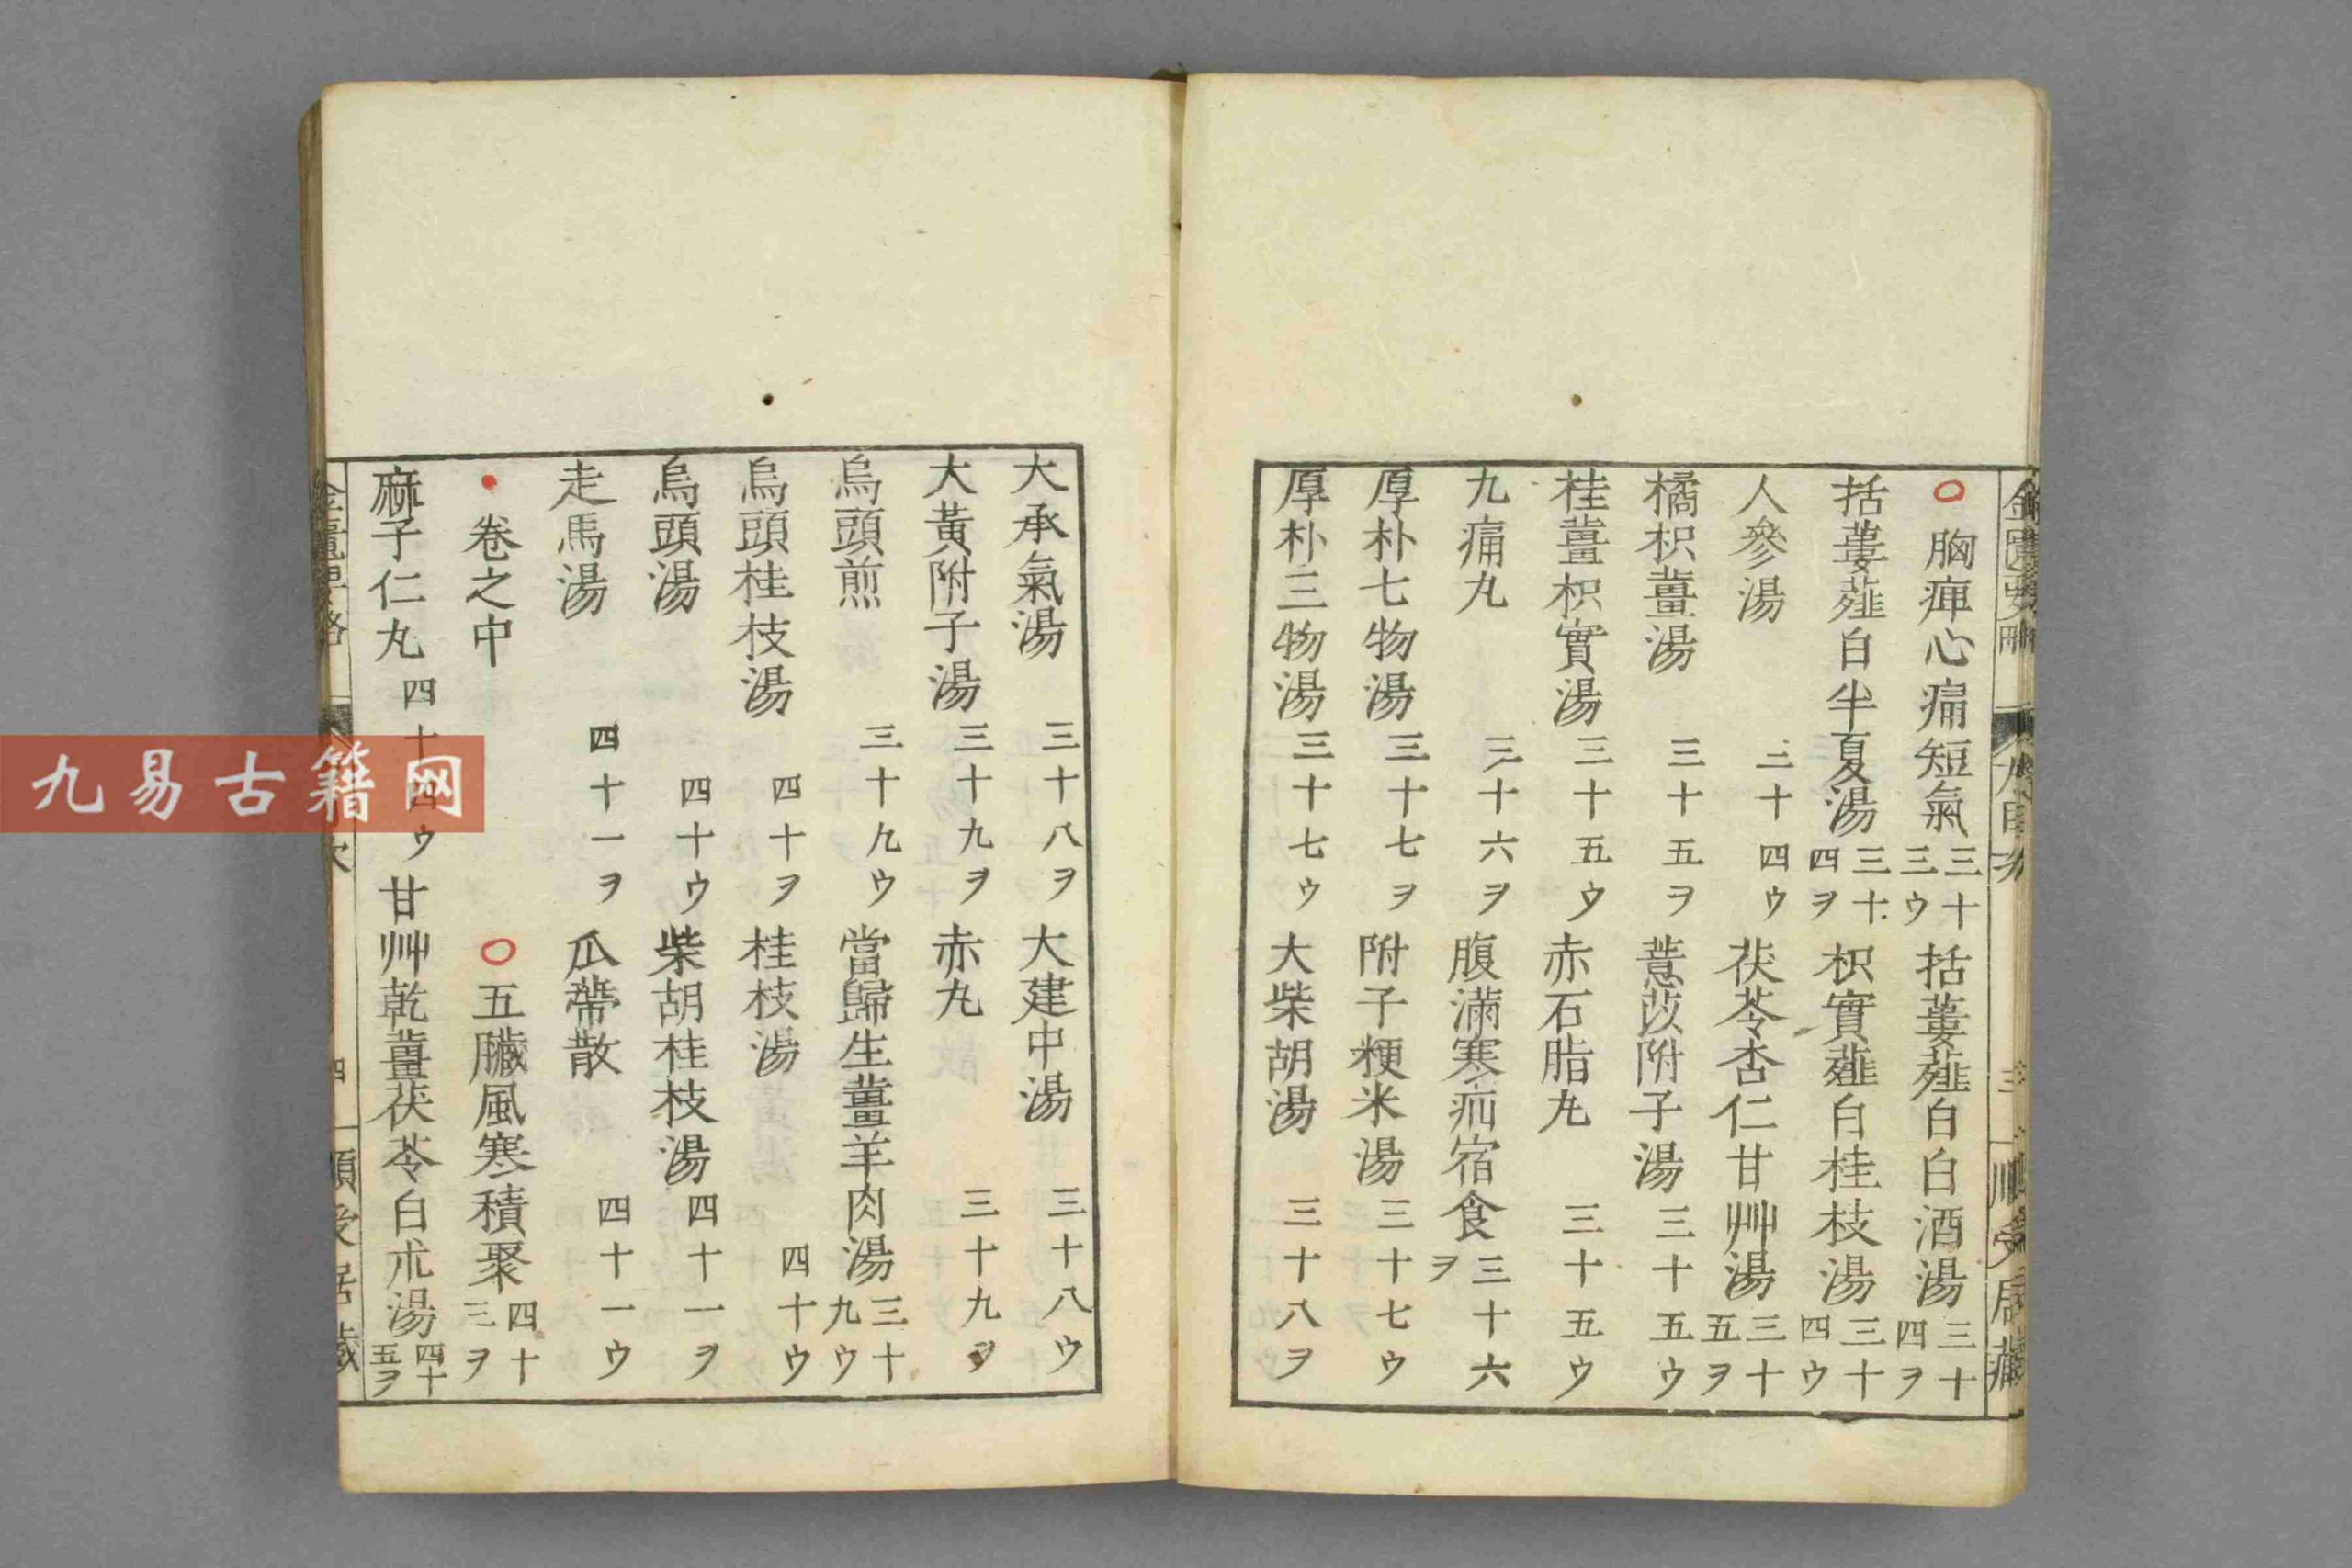 ○胸痺心痛短氣 三十三ウ 括蔞薤白白酒湯 三十四ヲ
括蔞薤白半夏湯 三十四ヲ 枳實薤白桂枝湯 三十四ウ
人參湯 三十四ウ 茯苓杏仁甘艸湯 三十五ヲ
橘枳薑湯 三十五ヲ 薏苡附子湯 三十五ウ
桂薑枳實湯 三十五ウ 赤石脂丸 三十五ウ
九痛丸 三十六ヲ 腹滿寒疝宿食 三十六ヲ
厚朴七物湯 三十七ヲ 附子粳米湯 三十七ウ
厚朴三物湯 三十七ウ 大柴胡湯 三十八ヲ
大承氣湯 三十八ヲ 大建中湯 三十八ウ
大黃附子湯 三十九ヲ 赤丸 三十九ヲ
烏頭煎 三十九ウ 當歸生薑羊肉湯 三十九ウ
烏頭桂枝湯 四十ヲ 桂枝湯 四十ウ
烏頭湯 四十ウ 柴胡桂枝湯 四十一ヲ
走馬湯 四十一ヲ 瓜蔕散 四十一ウ
卷之中 ○五臟風寒積聚 四十三ヲ
麻子仁丸 四十四ウ 甘艸乾薑茯苓白朮湯 四十五ヲ
九易古籍网